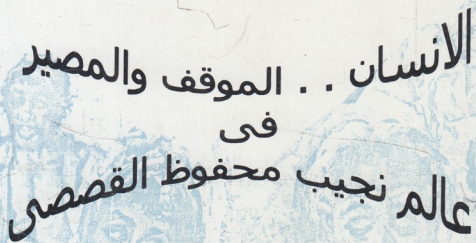 الانسان . . الموقف والمصير
فى
عالم نجيب محفوظ القصصى